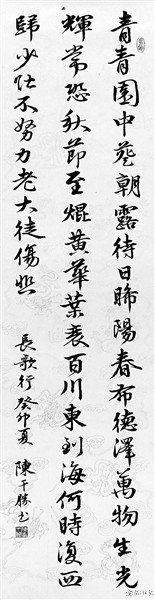 青青園中葵朝露待日晞陽春布德澤萬物生光
輝常恐秋節至焜黃華葉衰百川東到海何時復西
歸少壯不努力老大徒傷悲
長歌行 癸卯夏 陳千勝书